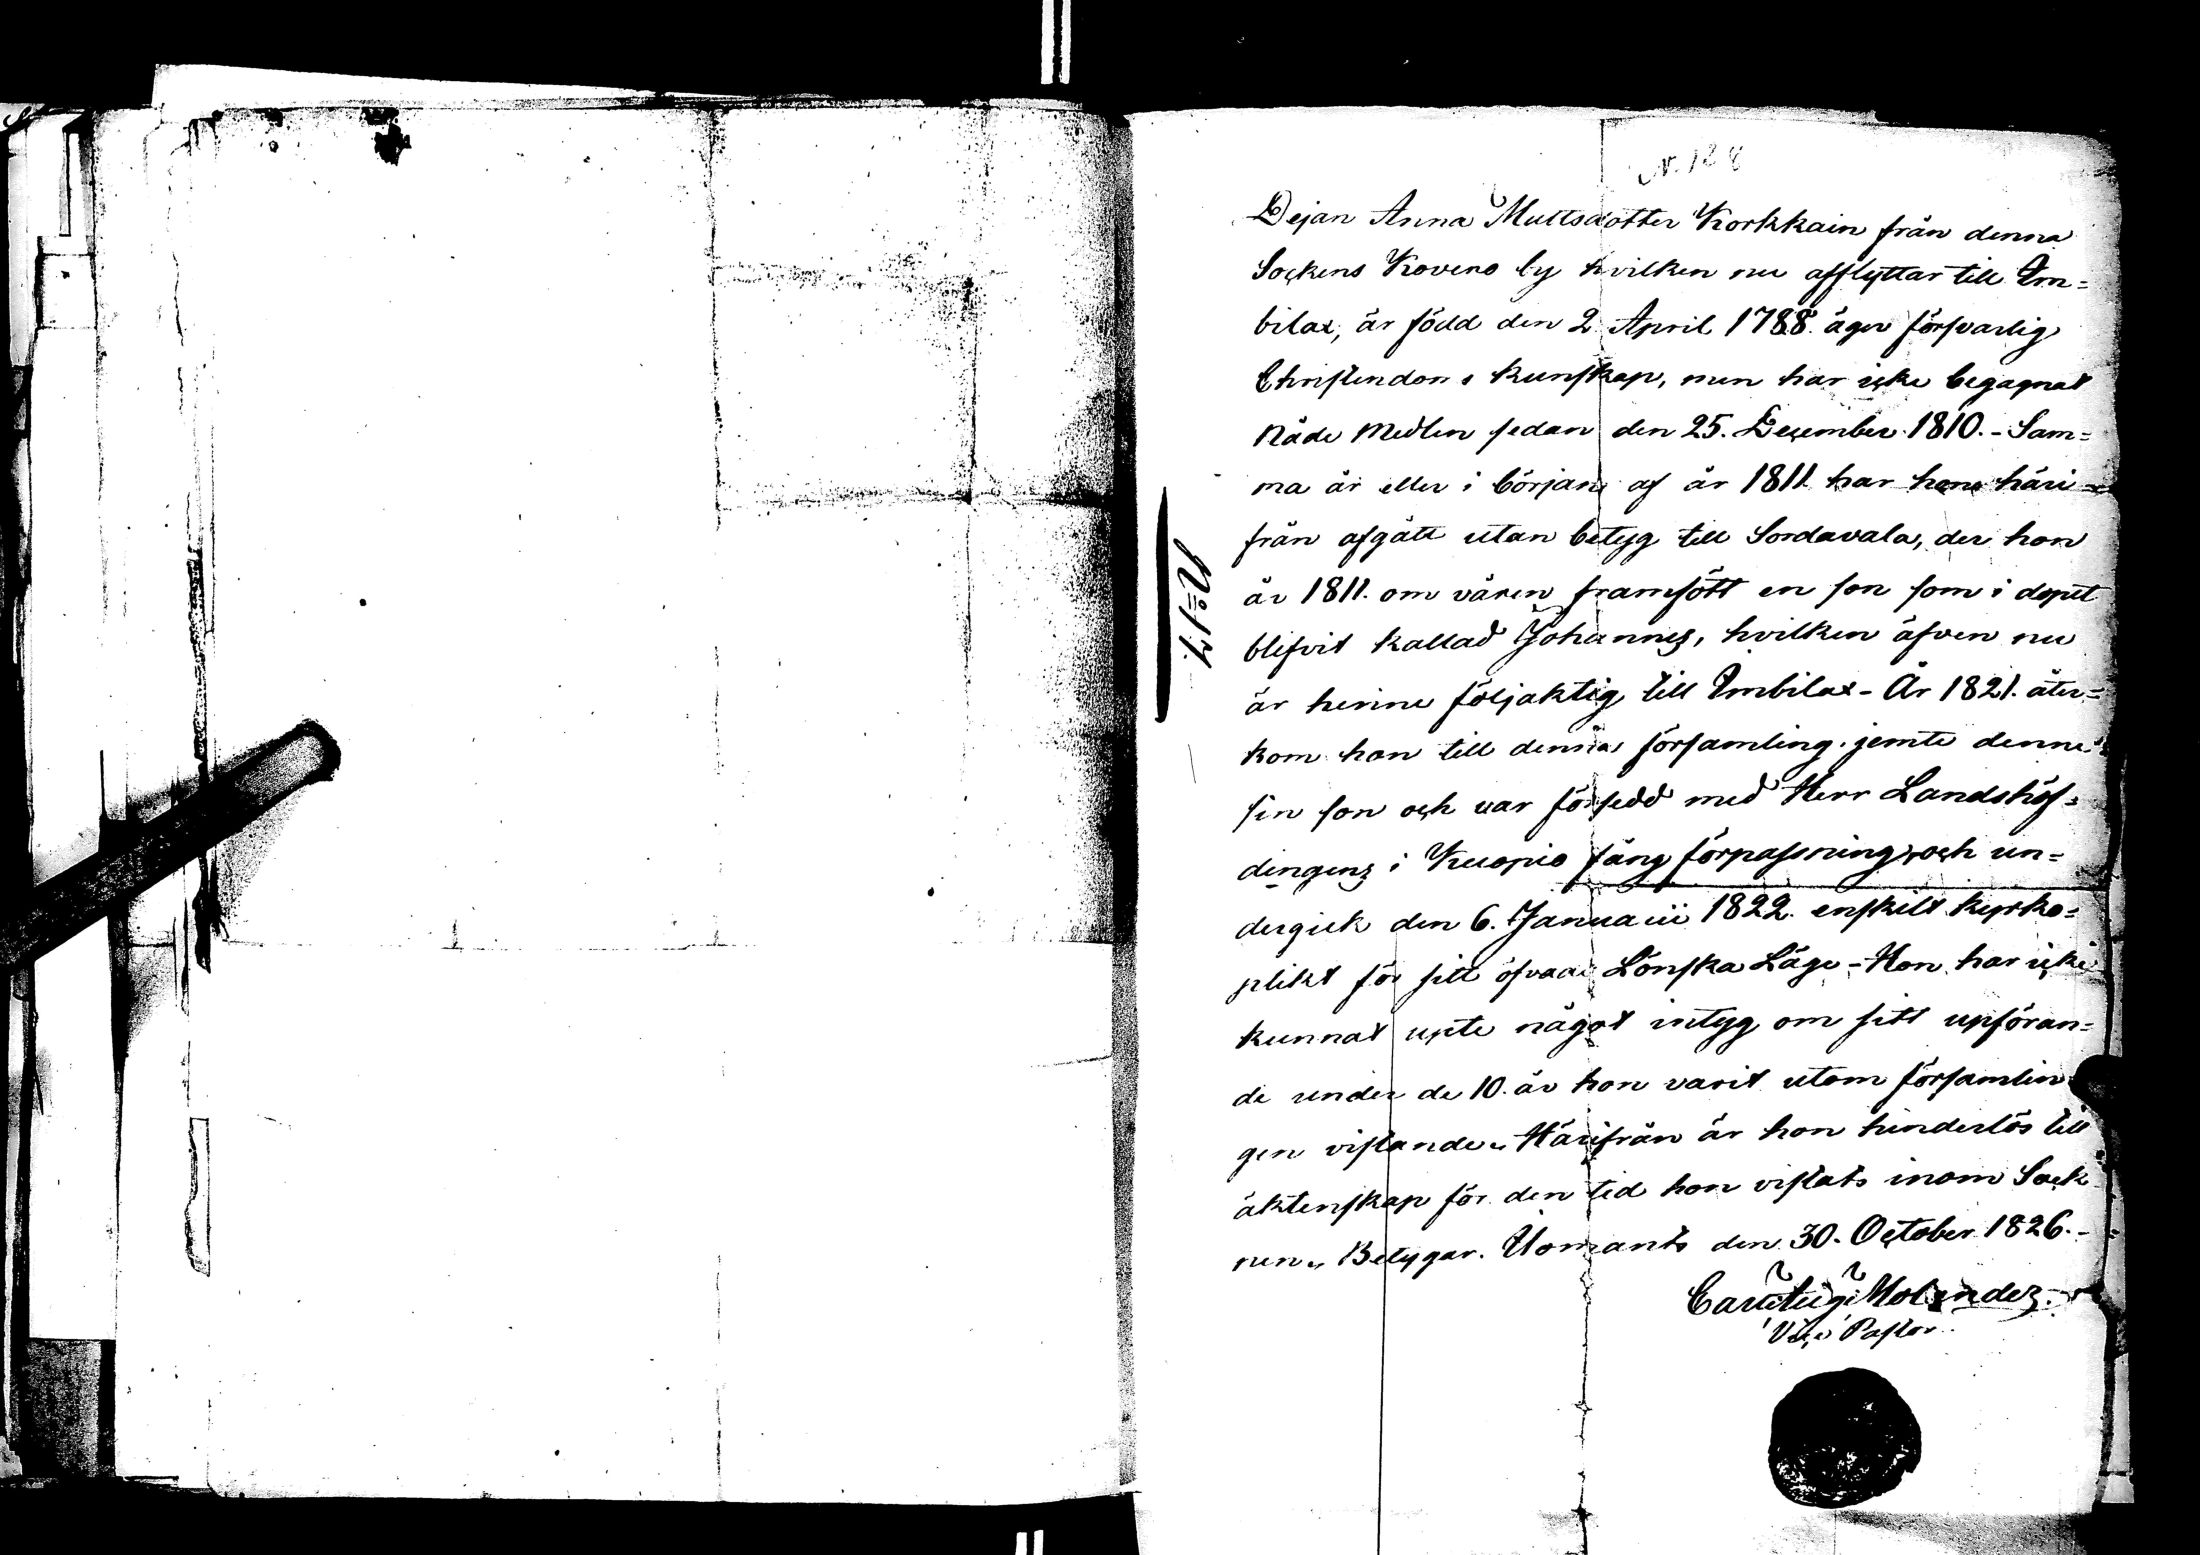 N. 128
Dejan Anna Mattsdotter Korkkain från denna
Sockens Kovero by hvilken nu afflyttar till Im=
bilax, är född den 2 April 1788. äger försvarlig
Christendoms kunskap, men har icke begagnat
Nåde Medlen sedan den 25. December 1810. - Sam=
ma år eller i början af år 1811 har hon häri=
från afgått utan betyg till Sordavala, der hon
år 1811. om våren framfött en son som i dopet
blifvit kallad Johannes, hvilken äfven nu
är henne följaktig till Imbilax - År 1821. åter=
kom hon till denna församling jemte denne
sin son och var försedd med Herr Landshöf=
dingens i Kuopio fång förpassning och un=
dergick den 6. Januarii 1822. enskilt kyrko=
plikt för sitt Lönska Läge - Hon har icke
kunnat upte något intyg om sitt upföran=
de under de 10. år hon varit utom församlin
gen vistande. Härifrån är hon hinderlös till
äktenskap för den tid hon vistats inom Sock
nen. Betygar. Ilomants den 30. October 1826. -
Molander.
Vice Pastor.
N:o 17.